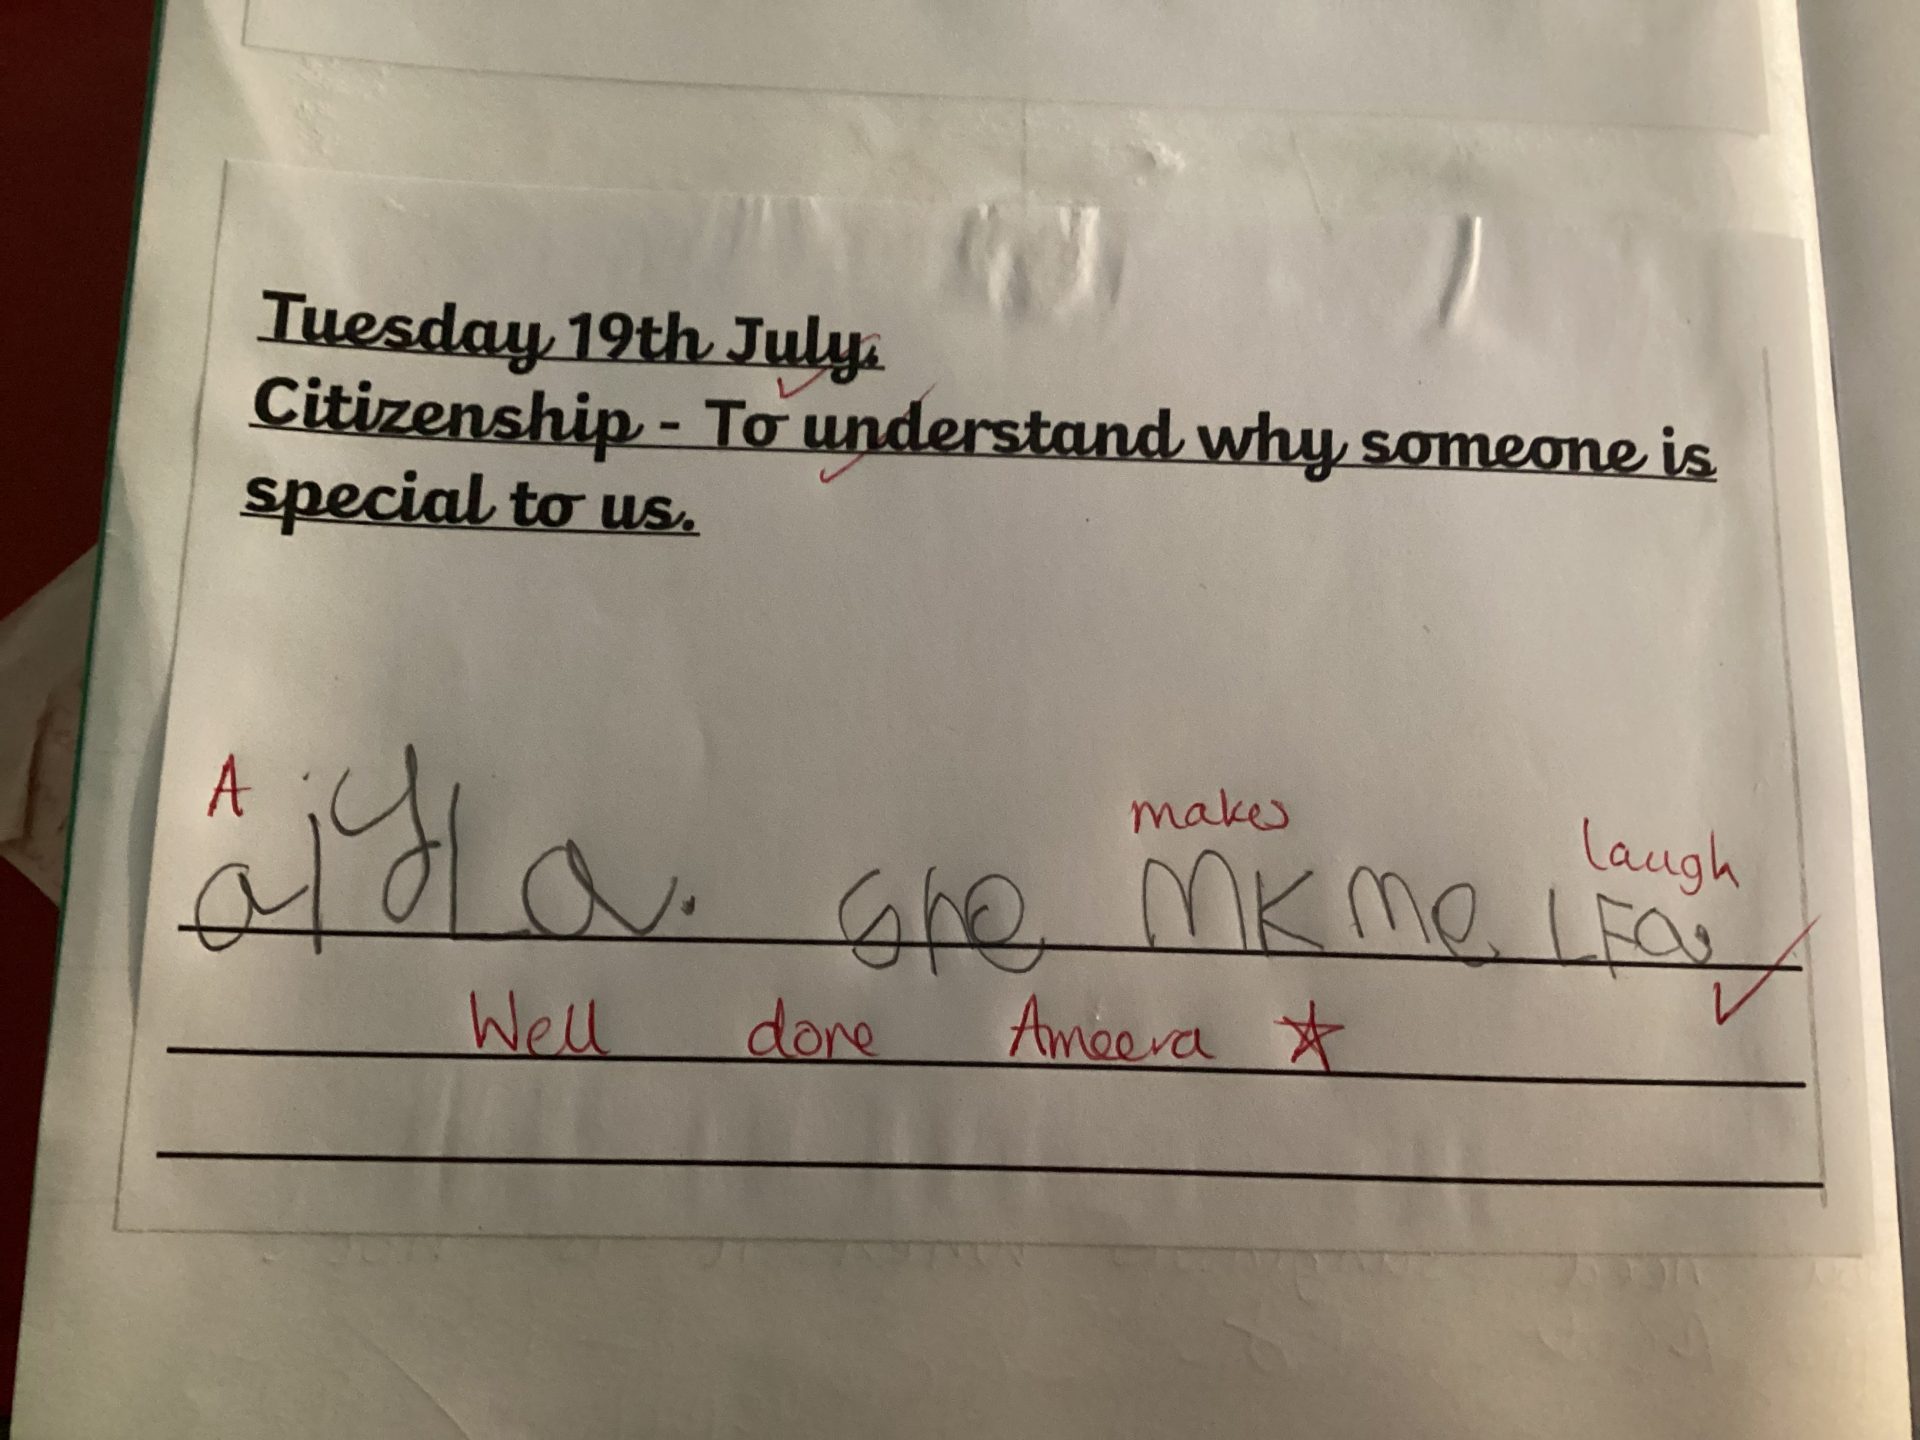 Tuesday 19th July.
Citizenship - To understand why someone is
special to us.
A makes laugh
aiyLa. She MK Me LFa
Well done Ameera